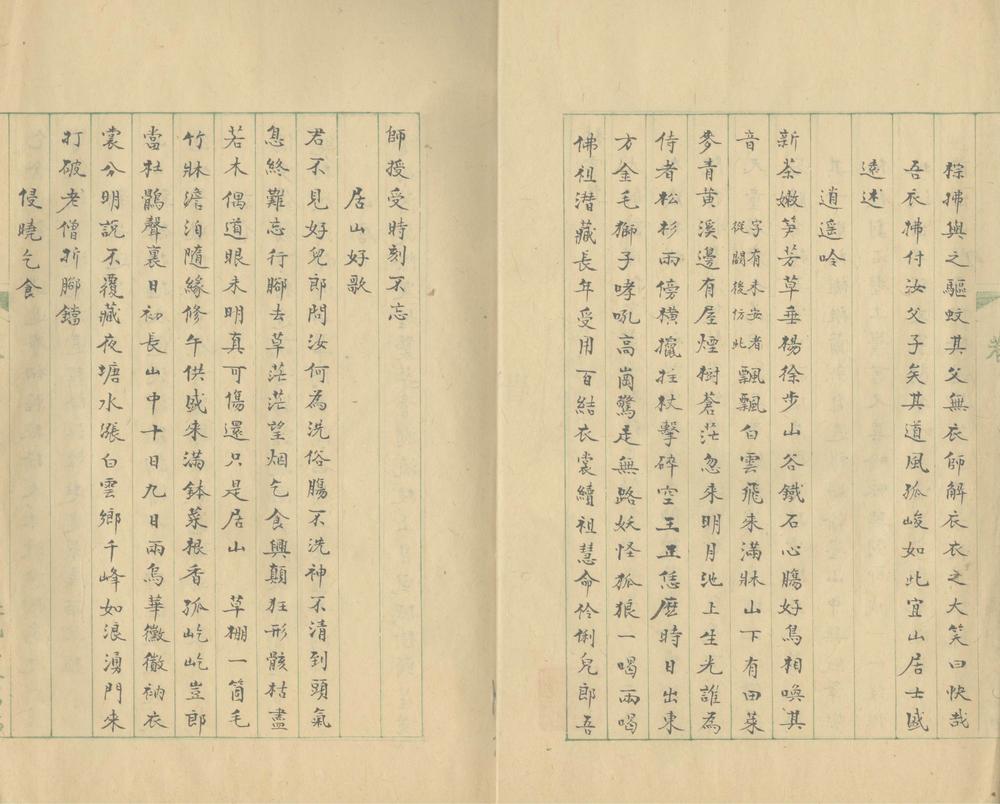 棕拂與之驅蚊其父無衣師解衣衣之大笑曰快哉
吾衣拂付汝父子矣其道風孤峻如此宜山居士盛
遠述
逍遥吟
新茶嫩笋芳草垂楊徐步山谷鐵石心腸好鳥相喚其
音字有未安者從闕後仿此飄飄白雲飛來滿牀山下有田菜
麥青黄溪邊有屋煙樹蒼茫忽來明月池上生光誰為
侍者松杉兩傍横擔拄杖擊碎空王正恁麽時日出東
方金毛獅子哮吼高崗驚走無路妖怪狐狼一喝兩喝
佛祖潛藏長年受用百結衣裳續祖慧命伶俐兒郎吾
師授受時刻不忘
居山好歌
君不見好兒郎問汝何為洗俗腸不洗神不清到頭氣
息終難忘行腳去草茫茫望烟乞食興顛狂形骸枯盡
若木偶道眼未明真可傷還只是居山 草棚一箇毛
竹牀澹泊隨緣修午供盛來滿鉢菜根香孤屹屹豈郎
當杜鵑聲裏日初長山中十日九日雨烏華黴黴衲衣
裳分明説不覆藏夜塘水漲白雲鄉千峰如浪湧門來
打破老僧折腳鐺
侵曉乞食